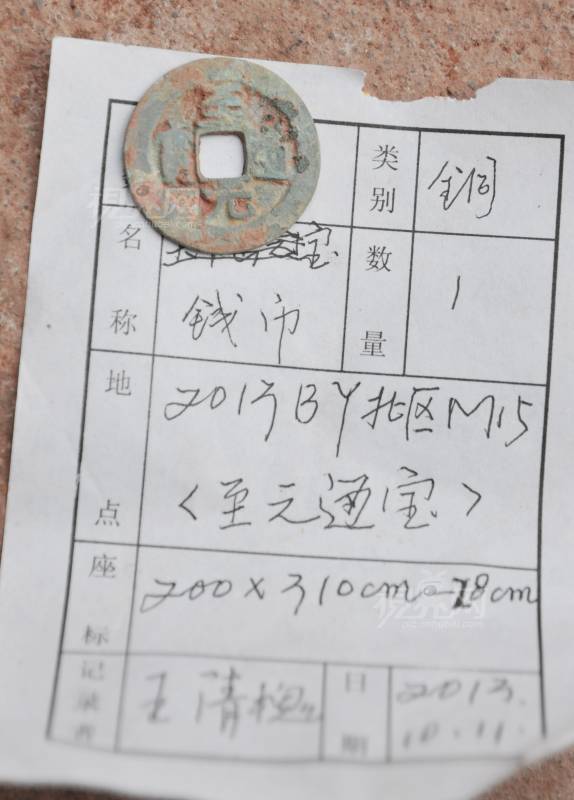 至元通宝
类别
铜
名称
钱币
数量
1
地点
2013BY北区M15
〈至元通宝〉
座标
200×310cm-78cm
记录者
王清
日期
2013.
10.11.